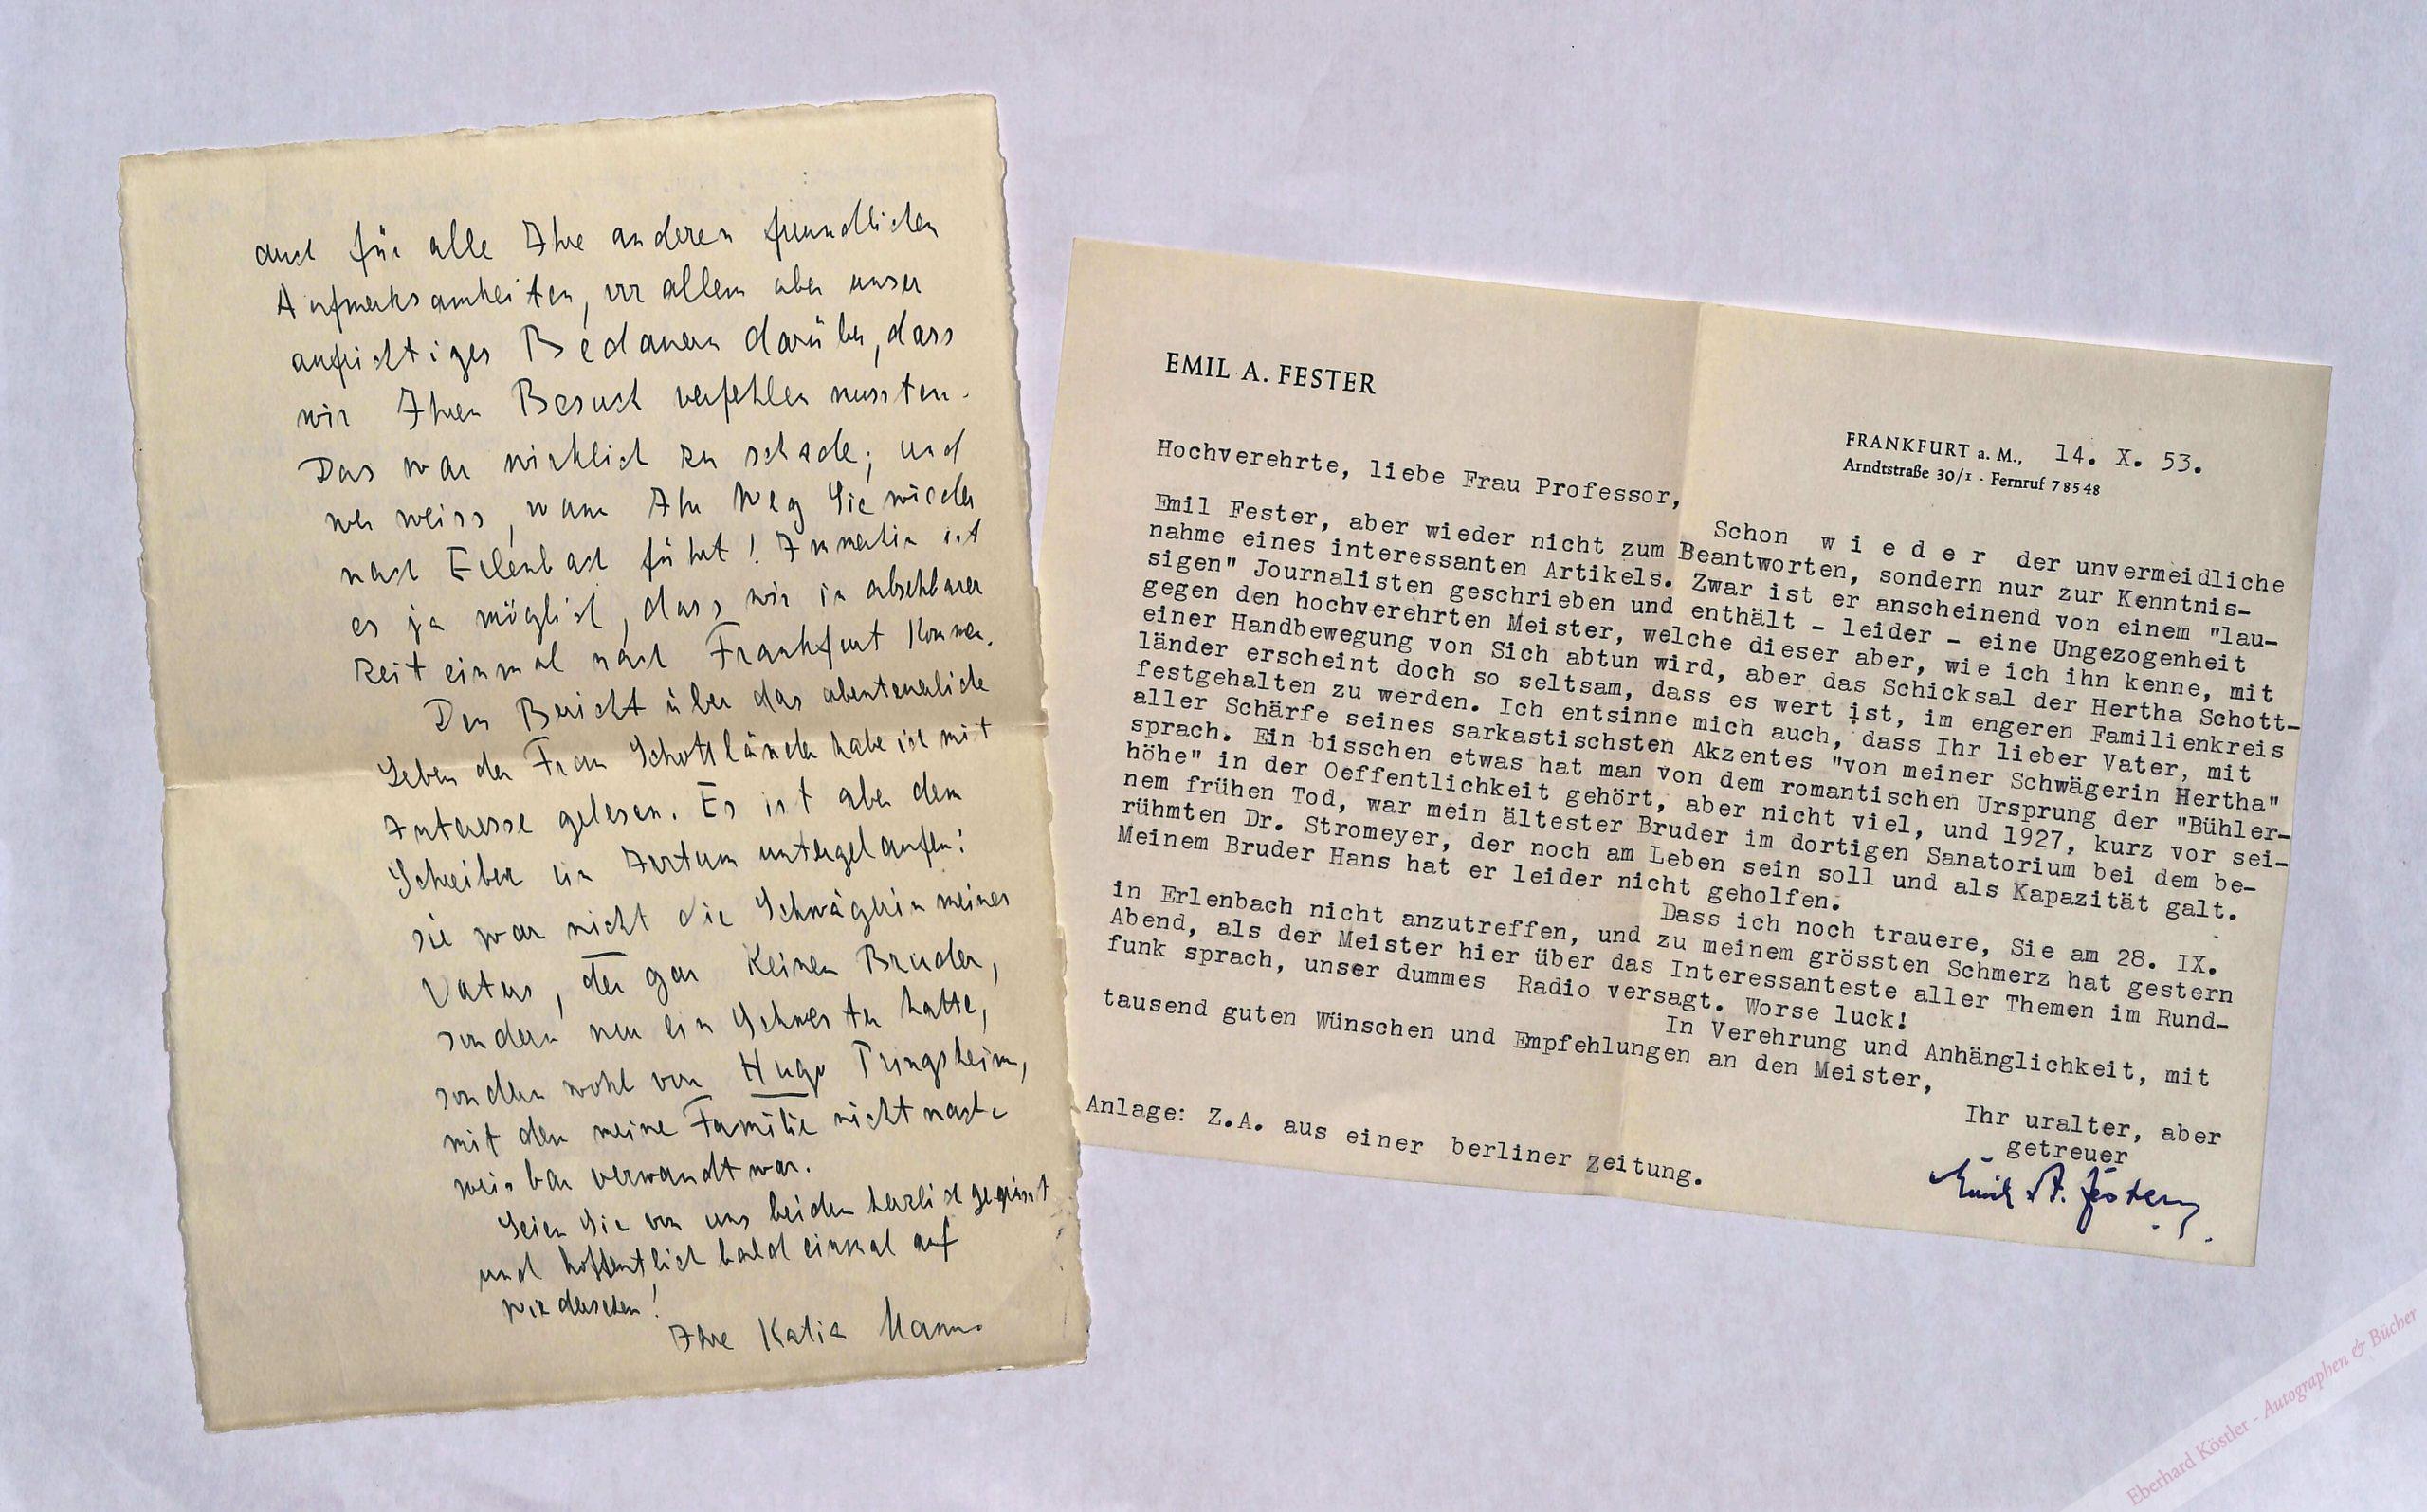 auch für alle Ihre anderen freundlichen
Aufmerksamkeiten, vor allem aber unser
aufrichtiges Bedauern darüber, dass
wir Ihren Besuch verfehlen mussten.
Das war wirklich zu schade; und
wer weiss, wann Ihr Weg Sie wieder
nach Erlenbach führt! Immerhin ist
es ja möglich, dass wir in absehbarer
Zeit einmal nach Frankfurt kommen.
Den Bericht über das abenteuerliche
Leben der Frau Schottländer habe ich mit
Interesse gelesen. Es ist aber dem
Schreiber ein Irrtum untergelaufen:
sie war nicht die Schwägerin meines
Vaters, der gar keinen Bruder,
sondern nur ein Schwester hatte,
sondern wohl von Hugo Pringsheim,
mit dem meine Familie nicht nach-
weisbar verwandt war.
Seien Sie von uns beiden herzlich gegrüsst
und hoffentlich bald einmal auf
wiedersehen!
Ihre Katia Mann.
EMIL A. FESTER
FRANKFURT a. M., 14. X. 53.
Arndtstraße 30/I · Fernruf 78548
Hochverehrte, liebe Frau Professor,
Schon w i e d e r der unvermeidliche
Emil Fester, aber wieder nicht zum Beantworten, sondern nur zur Kenntnis-
nahme eines interessanten Artikels. Zwar ist er anscheinend von einem "lau-
sigen" Journalisten geschrieben und enthält - leider - eine Ungezogenheit
gegen den hochverehrten Meister, welche dieser aber, wie ich ihn kenne, mit
einer Handbewegung von Sich abtun wird, aber das Schicksal der Hertha Schott-
länder erscheint doch so seltsam, dass es wert ist, im engeren Familienkreis
festgehalten zu werden. Ich entsinne mich auch, dass Ihr lieber Vater, mit
aller Schärfe seines sarkastischsten Akzentes "von meiner Schwägerin Hertha"
sprach. Ein bisschen etwas hat man von dem romantischen Ursprung der "Bühler-
höhe" in der Oeffentlichkeit gehört, aber nicht viel, und 1927, kurz vor sei-
nem frühen Tod, war mein ältester Bruder im dortigen Sanatorium bei dem be-
rühmten Dr. Stromeyer, der noch am Leben sein soll und als Kapazität galt.
Meinem Bruder Hans hat er leider nicht geholfen.
Dass ich noch trauere, Sie am 28. IX.
in Erlenbach nicht anzutreffen, und zu meinem grössten Schmerz hat gestern
Abend, als der Meister hier über das Interessanteste aller Themen im Rund-
funk sprach, unser dummes Radio versagt. Worse luck!
In Verehrung und Anhänglichkeit, mit
tausend guten Wünschen und Empfehlungen an den Meister,
Ihr uralter, aber
getreuer
Emil A. Fester
Anlage: Z.A. aus einer berliner Zeitung.
Eberhard Köstler - Autographen & Bücher